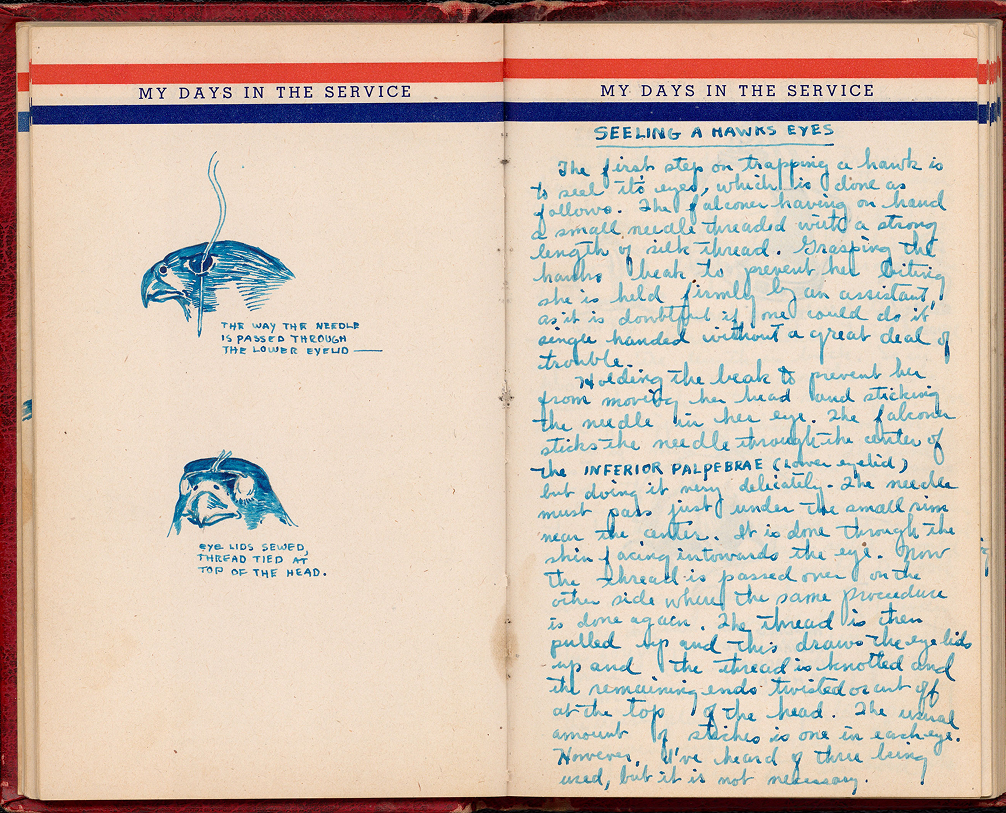 MY DAYS IN THE SERVICE
THE WAY THE NEEDLE
IS PASSED THROUGH
THE LOWER EYELID
EYE LIDS SEWED,
THREAD TIED AT
TOP OF THE HEAD.
MY DAYS IN THE SERVICE
SEELING A HAWKS EYES
The first step on trapping a hawk is
to seel it's eyes, which is done as
follows. The falconer having on hand
a small needle threaded with a strong
length of silk thread. Grasping the
hawks beak to prevent her biting
she is held firmly by an assistant,
as it is doubtful if one could do it
single handed without a great deal of
trouble.
Holding the beak to prevent her
from moving her head and sticking
the needle in her eye. The falconer
sticks the needle through the center of
the INFERIOR PALPEBRAE (Lower eyelid)
but doing it very delicately. The needle
must pass just under the small rim
near the center. It is done through the
skin facing in towards the eye. Now
the thread is passed over on the
other side where the same procedure
is done again. The thread is then
pulled up and this draws the eye lids
up and the thread is knotted and
the remaining ends twisted or cut off
at the top of the head. The usual
amount of stiches is one in each eye.
However, I've heard of three being
used, but it is not necessary.